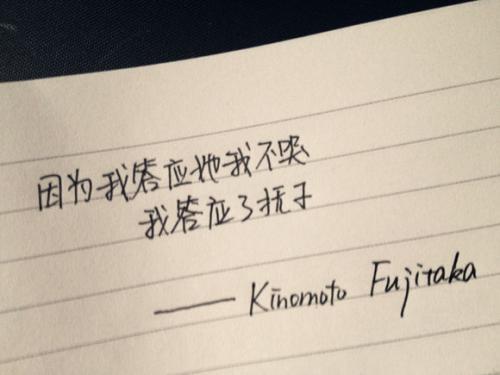 因为我答应她我不哭
我答应了抚子
—— Kinomoto Fujitaka